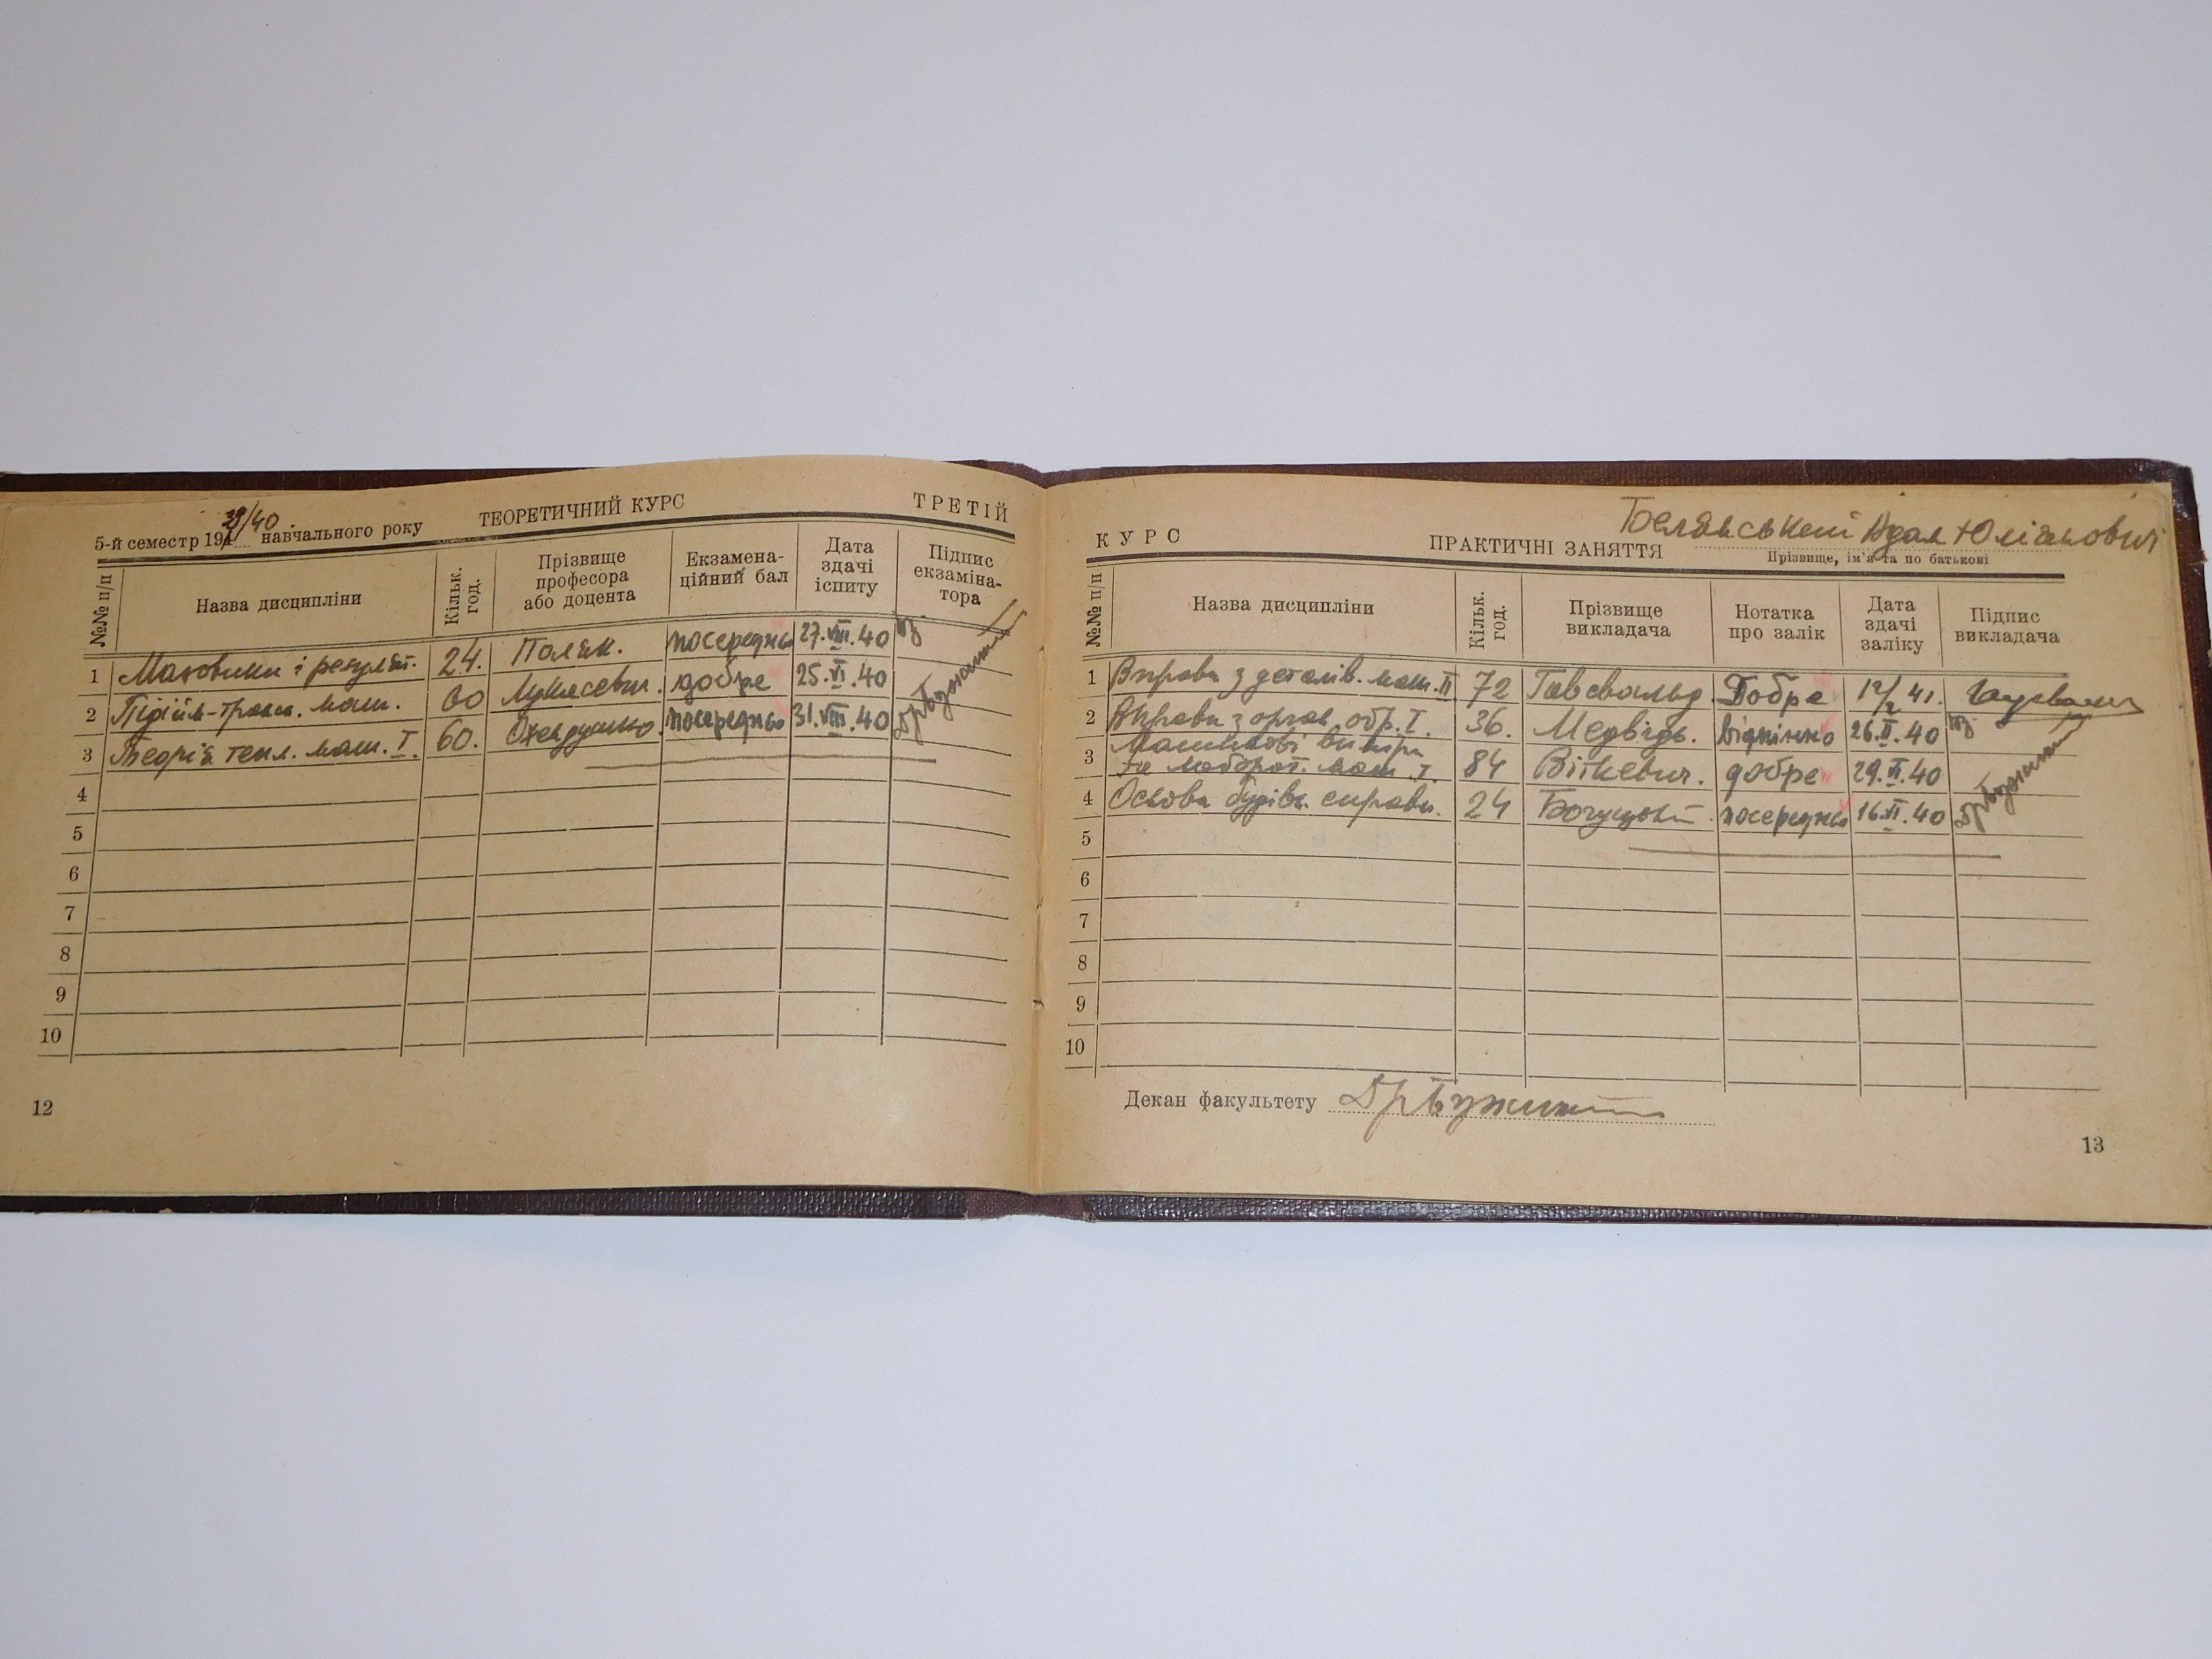 5-й семестр 1939/40 навчального року ТЕОРЕТИЧНИЙ КУРС ТРЕТІЙ
№№ п/п Назва дисципліни Кільк. год. Прізвище професора або доцента Екзаменаційний бал Дата здачі іспиту Підпис екзаменатора
1 Маховики і регулят. 24. Поляк. посередньо 27.VIII.40 вз.
2 Підійм-трансп. маш. 60 Лукасевич. добре 25.VI.40
3 Теорія тепл. маш. I. 60. Охендушко. посередньо 31.VIII.40
4
5
6
7
8
9
10
12
КУРС ПРАКТИЧНІ ЗАНЯТТЯ Адам Юліянович
Прізвище, ім'я та по батькові
№№ п/п Назва дисципліни Кільк. год. Прізвище викладача Нотатка про залік Дата здачі заліку Підпис викладача
1 Вправи з деталів. маш. II 72 Гавсвальд Добре 41.
2 Вправи з орган. обр. I. 36. Медвідь. відмінно 26.II.40 вз
3 Машинові виміри маш. I. 84 Віткевич. добре 29.VI.40
4 Основи будівн. справи. 24 посередньо 16.VI.40
5
6
7
8
9
10
Декан факультету
13